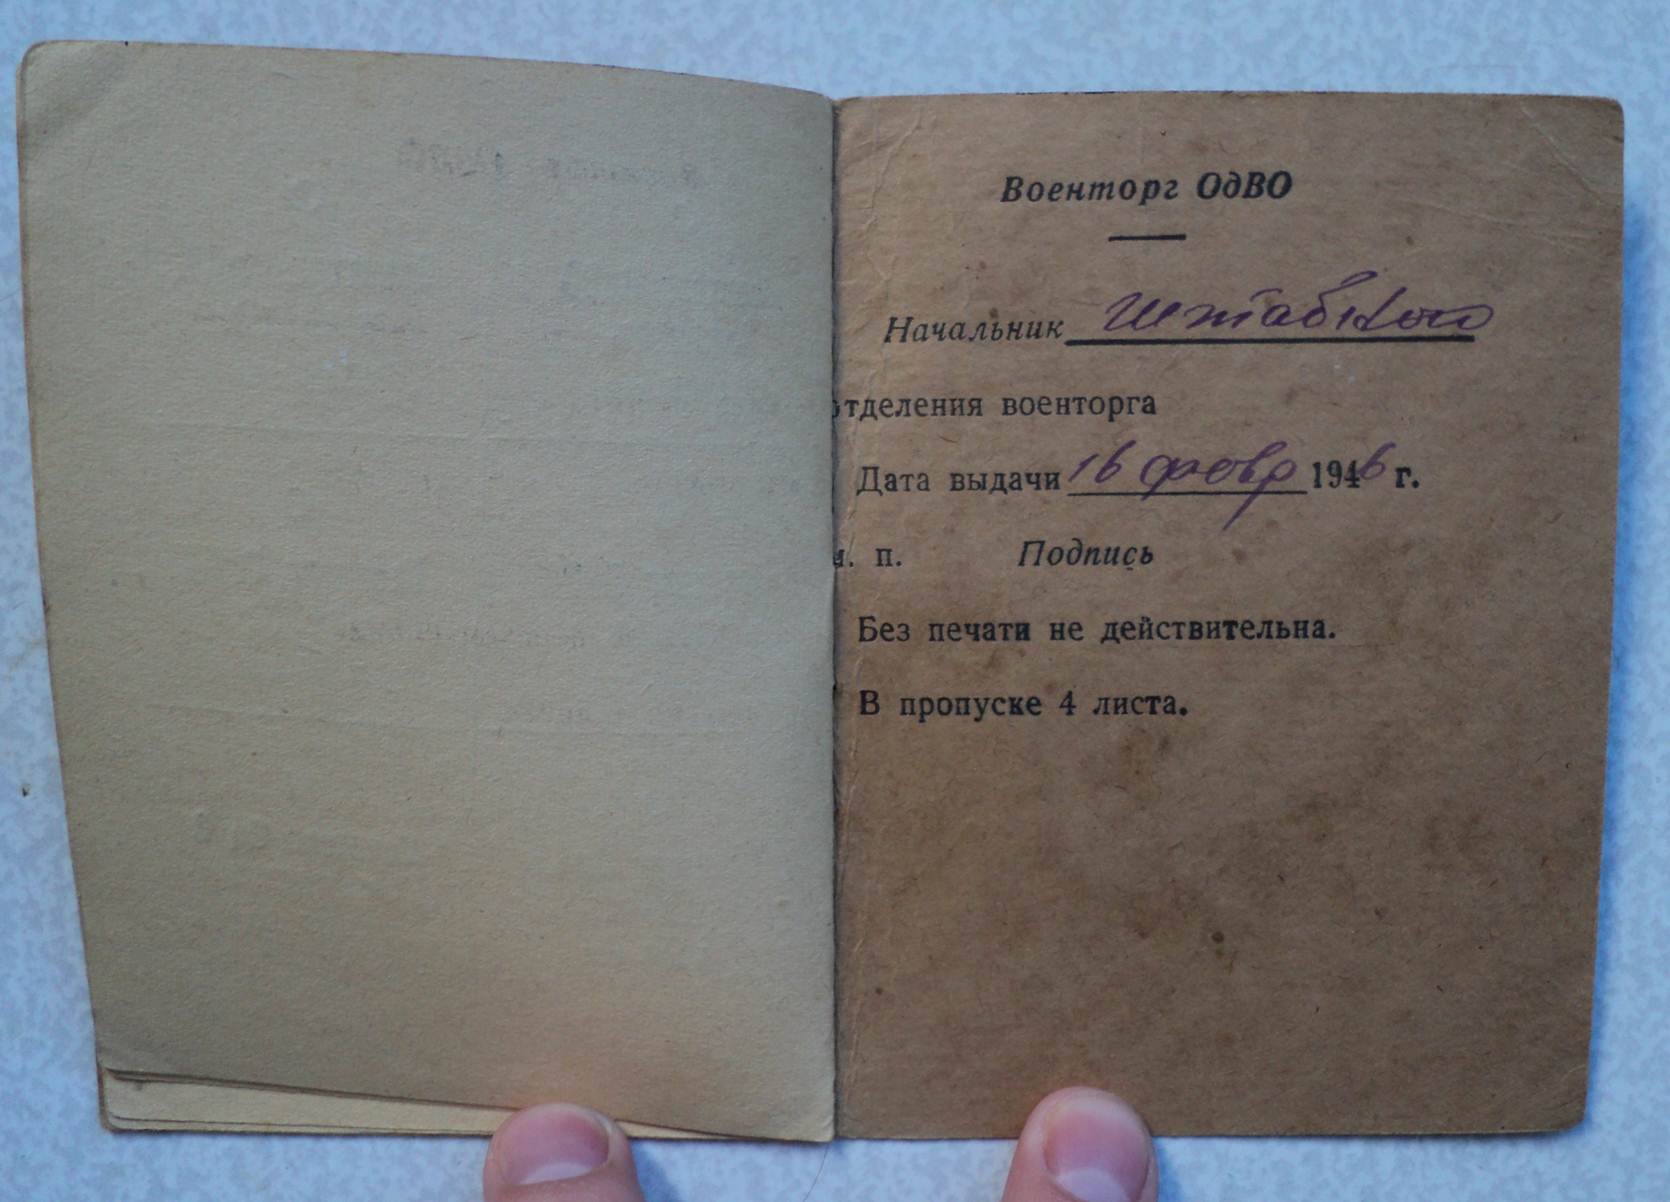 Военторг ОдВО
Начальник Штабного
отделения военторга
Дата выдачи 16 февр 1946 г.
м. п. Подпись
Без печати не действительна.
В пропуске 4 листа.